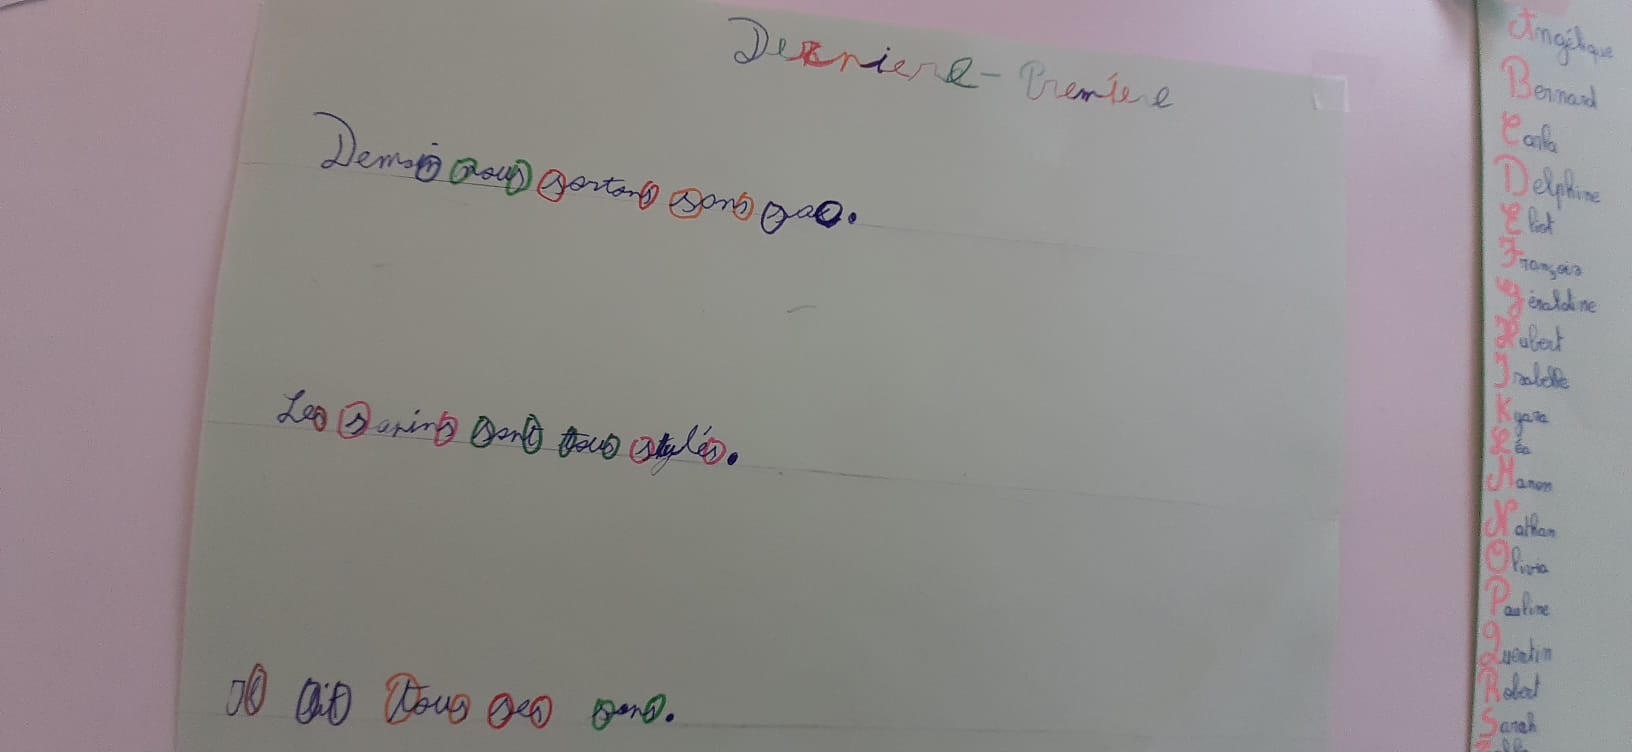 Derniere - Premiere
Demain nous sortons sans sac.
Les sapins sont tous stylés.
Il lit tous ses sons.
Angélique
Bernard
Carla
Delphine
Eliot
François
Géraldine
Hubert
Isabelle
Kyara
Léa
Manon
Nathan
Olivia
Pauline
Quentin
Robert
Sarah